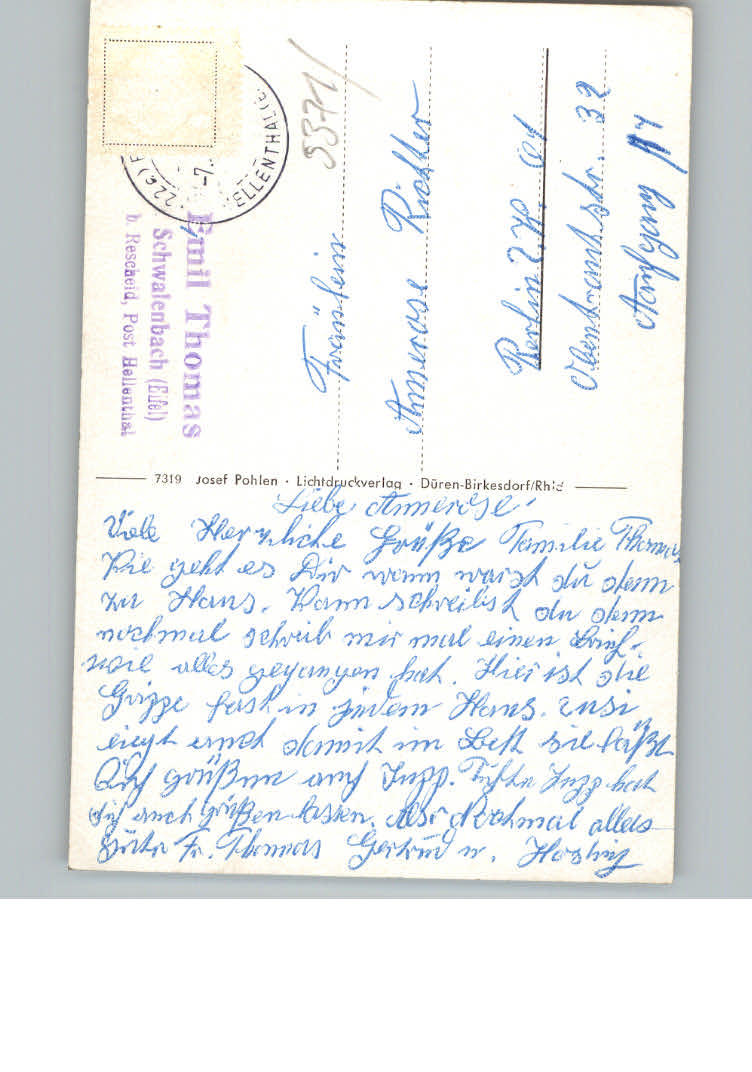 Emil Thomas
Schwalenbach (Eifel)
b. Rescheid, Post Hellenthal
ELLENTHAL (E
22c)
5371/
Fräulein
Annerose Richter
Berlin
32
Aufgang
7319 Josef Pohlen · Lichtdruckverlag · Düren-Birkesdorf/Rhld
Liebe Annerose!
Viele Herzliche Grüße Familie Thomas
Wie geht es Dir wann warst du denn
zu Haus. Wann schreibst du denn
nochmal schreib mir mal einen Brief.
wie alles gegangen hat. Hier ist die
Grippe fast in jedem Haus. Susi
liegt auch damit im Bett sie läßt
Dich grüßen auch Jupp. Jupp hat
dich auch grüßen lassen. Also Nochmal alles
Gute Fr. Thomas Gertrud u.